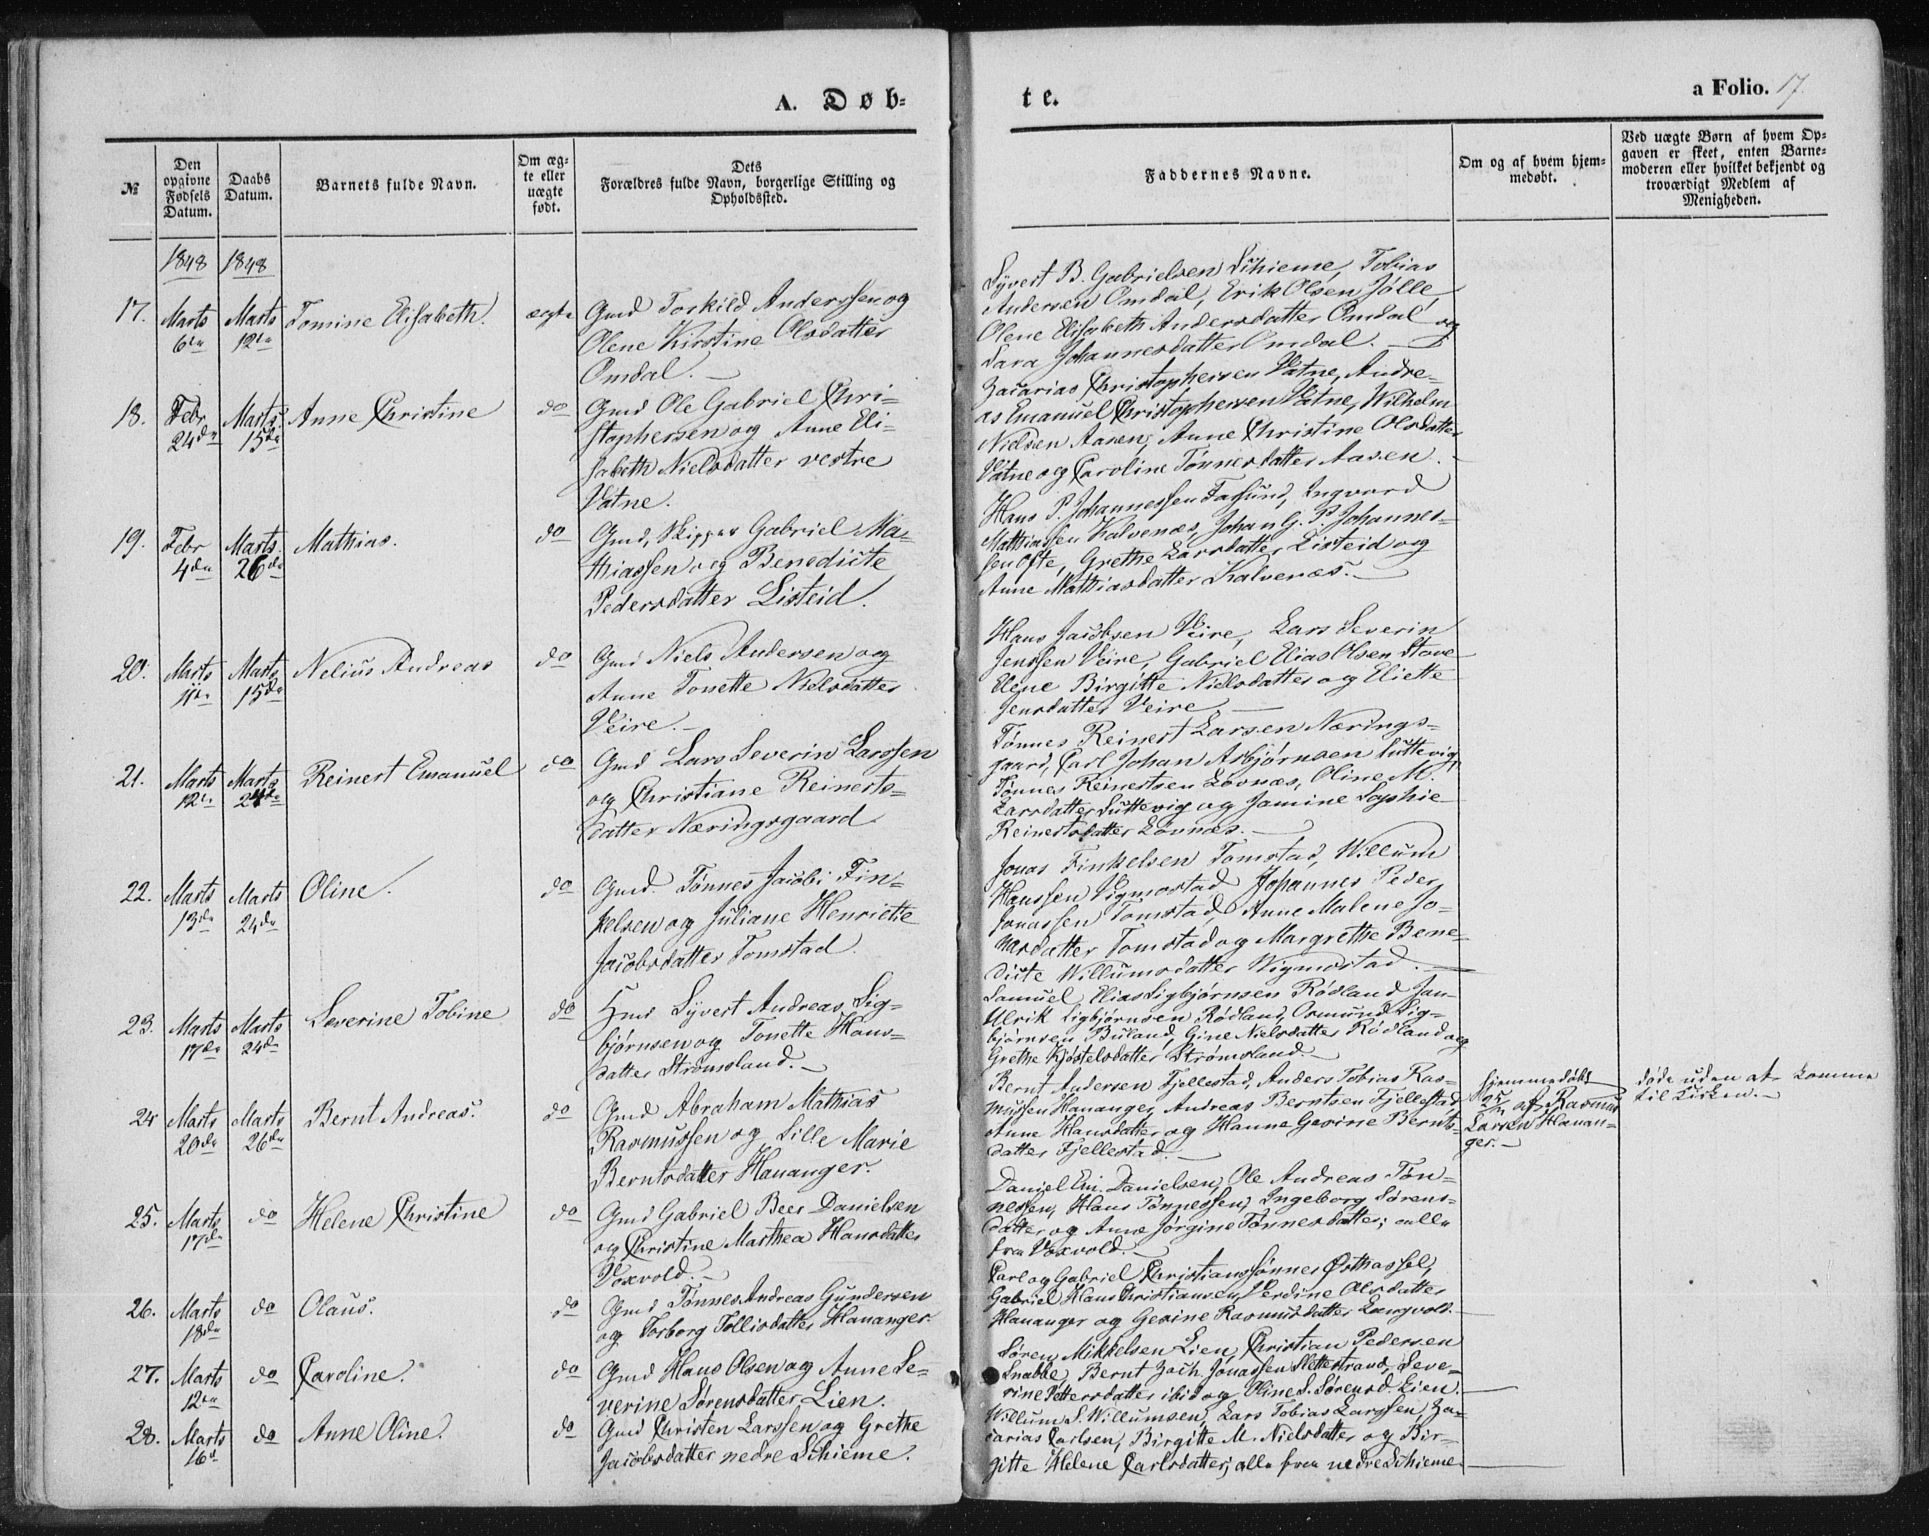 A. Døb-
te.
a Folio. 17.
№
Den opgivne Fødsels Datum.
Daabs Datum.
Barnets fulde Navn.
Om ægte eller uægte født.
Dets
Forældres fulde Navn, borgerlige Stilling og
Opholdssted.
Faddernes Navne.
Om og af hvem hjemmedøbt.
Ved uægte Børn af hvem Opgaven er skeet, enten Barnemoderen eller hvilket bekjendt og troværdigt Medlem af Menigheden.
1848 1848
17. Marts 6te Marts 12te Tomine Elisabeth. ægte Gmd Torkild Anderssen og
Olene Kirstine Olsdatter
Omdal.
Syvert B. Gabrielsen Schieme, Tobias
Andersen Omdal, Erik Olsen Jølle,
Olene Elisabeth Andersdatter Omdal og
Sara Johannesdatter Omdal.
18. Febr 24de Marts 15de Anne Christine do Gmd Ole Gabriel Chri-
stophersen og Anne Eli-
sabeth Nielsdatter vestre
Vatne.
Zacarias Christophersen Vatne, Andre-
as Emanuel Christophersen Vatne, Wilhelm
Nielsen Aasen, Anne Christine Olsdatter
Vatne og Caroline Tønnesdatter Aasen.
19. Febr 4de Marts 26de Mathias. do Gmd, Skipper Gabriel Ma-
thiassen og Benedicte
Pedersdatter Listeid.
Hans P. Johannessen Farsund, Ingvard
Mathiassen Kalvenæs, Johan G. P. Johannes-
sen Ofte, Grethe Larsdatter Listeid og
Anne Mathiasdatter Kalvenæs.
20. Marts 11te Marts 15de Nelius Andreas do Gmd Niels Andersen og
Anne Tonette Nielsdatter
Veire.
Hans Jacobsen Veire, Lars Severin
Jenssen Veire, Gabriel Elias Olsen Stave
Elene Birgitte Nielsdatter og Eliette
Jensdatter Veire
21. Marts 12te Marts 24de Reinert Emanuel do Gmd Lars Severin Larssen
og Christiane Reinerts-
datter Næringsgaard
Tønnes Reinert Larsen Nærings-
gaard, Carl Johan Asbjørnsen Luttevig,
Tønnes Reinertsen Løvnæs, Oline M.
Larsdatter Luttevig og Jamine Sophie
Reinertsdatter Løvnæs.
22. Marts 13de Marts 24de Oline. do Gmd. Tønnes Jacobi Fin-
kelsen og Juliane Henriette
Jacobsdatter Tomstad
Jonas Finkelsen Tomstad, Willum
Hanssen Vigmostad Johannes Peder
Jonassen Tomstad, Anne Malene Jo-
nasdatter Tomstad og Margrethe Bene-
dicte Willumsdatter Wigmostad.
23. Marts 17de Marts 24de Severine Tobine do Hmd Syvert Andreas Sig-
bjørnsen og Tonette Hans-
datter Strømsland.
Samuel Elias Sigbjørnsen Rødland Jan
Ulrik Sigbjørnsen Rødland, Ormund Sig-
bjørnsen Buland, Gine Nielsdatter Rødland og
Grethe Kjøstelsdatter Strømsland.
24 Marts 20de Marts 26de Bernt Andreas. do Gmd Abraham Mathias
Rasmussen og Lille Marie
Berntsdatter Hananger.
Bernt Andersen Fjellestad, Anders Tobias Ras-
mussen Hananger, Andreas Berntsen Fjellestad
Anne Hansdatter og Hanne Gesine Bernts-
datter Fjellestad.
hjemmedøbt
af Rasmus
Larsen Hanan-
ger.
døde uden at komme
til Kirken.
25. Marts 17de do Helene Christine do Gmd Gabriel Beer Danielsen
og Christine Marthea Hansdatter
Voxvold.
Daniel Em. Danielsen, Ole Andreas Tøn-
nessen, Hans Tønnessen, Ingeborg Sørens-
datter og Anne Jørgine Tønnesdatter; alle
fra Voxvold.
26. Marts 18de do Olaus. do Gmd, Tønnes Andreas Gundersen
og Torborg Tollisdatter Hananger.
Carl og Gabriel Christianssønner Østhassel,
Gabriel Hans Christiansen, Verdine Olsdatter
Hananger og Gesine Rasmusdatter Langvold.
27. Marts 12te do Caroline. do Gmd Hans Olsen og Anne Se-
verine Sørensdatter Lien.
Søren Mikkelsen Lien, Christian Pedersen
Snabbe, Bernt Zach. Jonassen Slettestrand, Seve-
rine Pettersdatter ibid og Oline S. Sørensd. Lien.
28. Marts 16d do Anne Oline. do Gmd Christen Larssen og Grethe
Jacobsdatter nedre Schieme.
Willum S. Willumsen, Lars Tobias Larssen, Za-
carias Carlsen, Birgitte M. Nielsdatter og Bir-
gitte Helene Carlsdatter; alle fra nedre Schieme